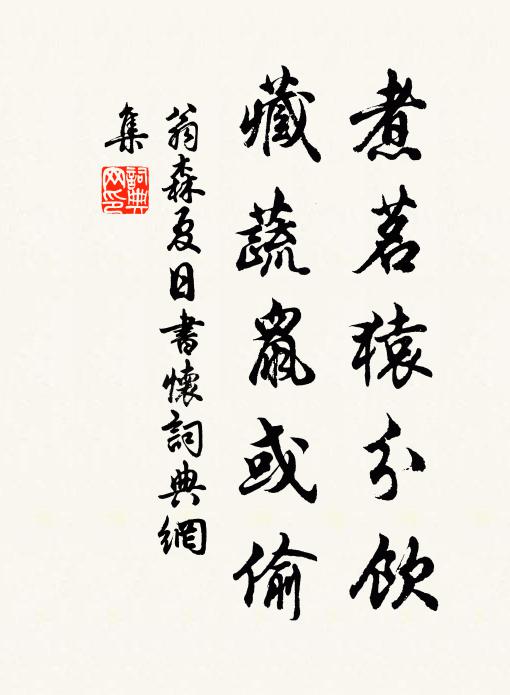 煮茗猿分飲
藏蔬鼠或偷
翁森夏日書懷詞典網
集
詞典网印